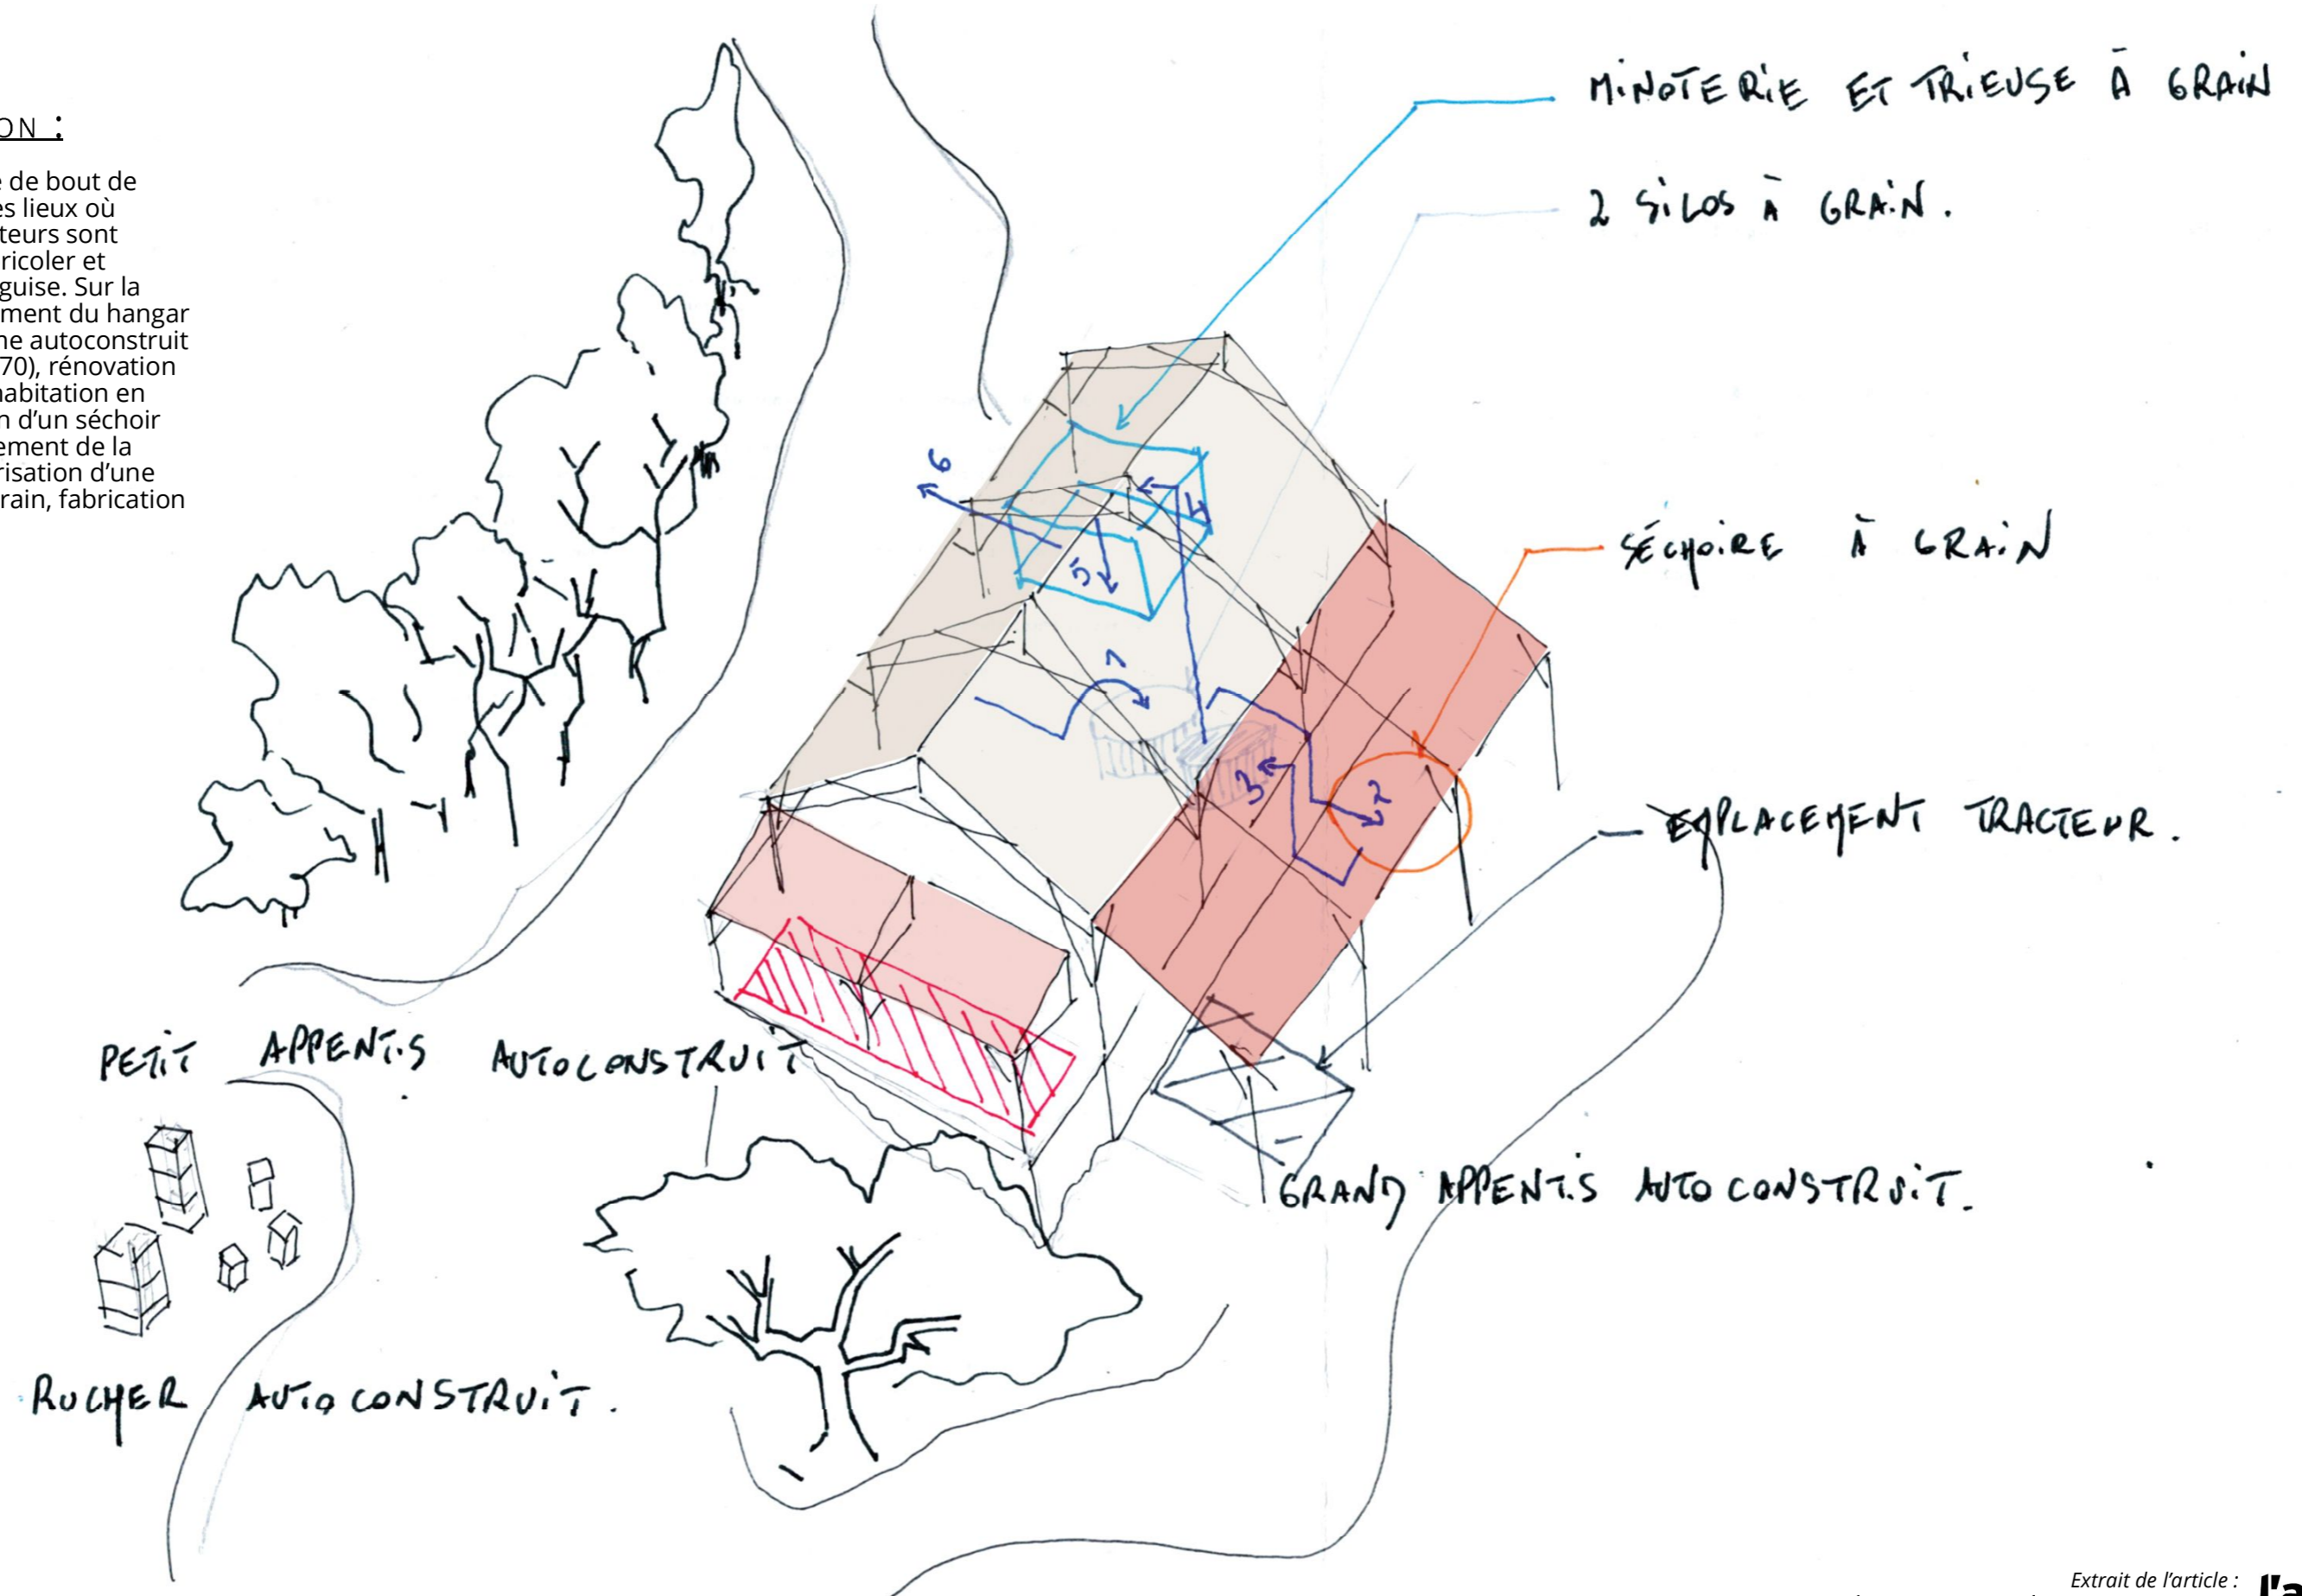 ON :
de bout de
es lieux où
teurs sont
ricoler et
guise. Sur la
ment du hangar
ne autoconstruit
70), rénovation
habitation en
n d’un séchoir
ement de la
risation d’une
rain, fabrication
MINOTERIE ET TRIEUSE À GRAIN
2 SILOS À GRAIN.
6
4
5
SÉCHOIRE À GRAIN
1
3
2
EMPLACEMENT TRACTEUR.
PETIT APPENTIS AUTOCONSTRUIT
GRAND APPENTIS AUTOCONSTRUIT.
RUCHER AUTOCONSTRUIT.
Extrait de l’article :
l'a